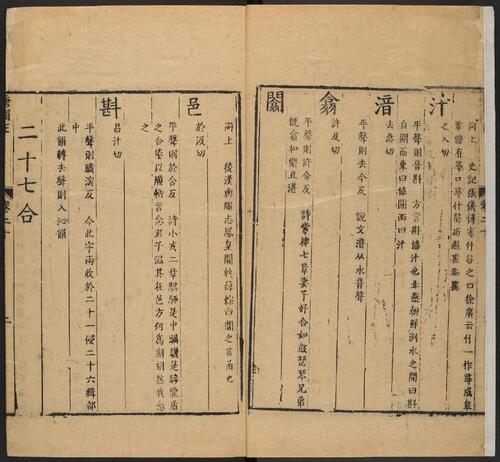 汁
同上　史記張儀傳塞什谷之口徐廣云什一作尋成皋
鞏縣有尋口尋什聲近故其名異
之入切
平聲則音斟　方言斟協汁也北燕朝鮮洌水之間曰斟
自關而東曰協關西曰汁
湆
去急切
平聲則去今反　說文湆从水音聲
翕
許及切
平聲則許含反　詩常棣七章妻子好合如鼓瑟琴兄弟
既翕和樂且湛
闟
同上　後漢輿服志鳳皇闟戟薛綜曰闟之言函也
邑
於汲切
平聲則於含反　詩小戎二章騏駵是中騧驪是驂龍盾
之合鋈以觼軜言念君子溫其在邑方何為期胡然我念
之
斟
昌汁切
平聲則職深反　今此字兩收於二十一侵二十六緝部
中
此韻轉去聲則入沁韻
二十七合
唐韻正